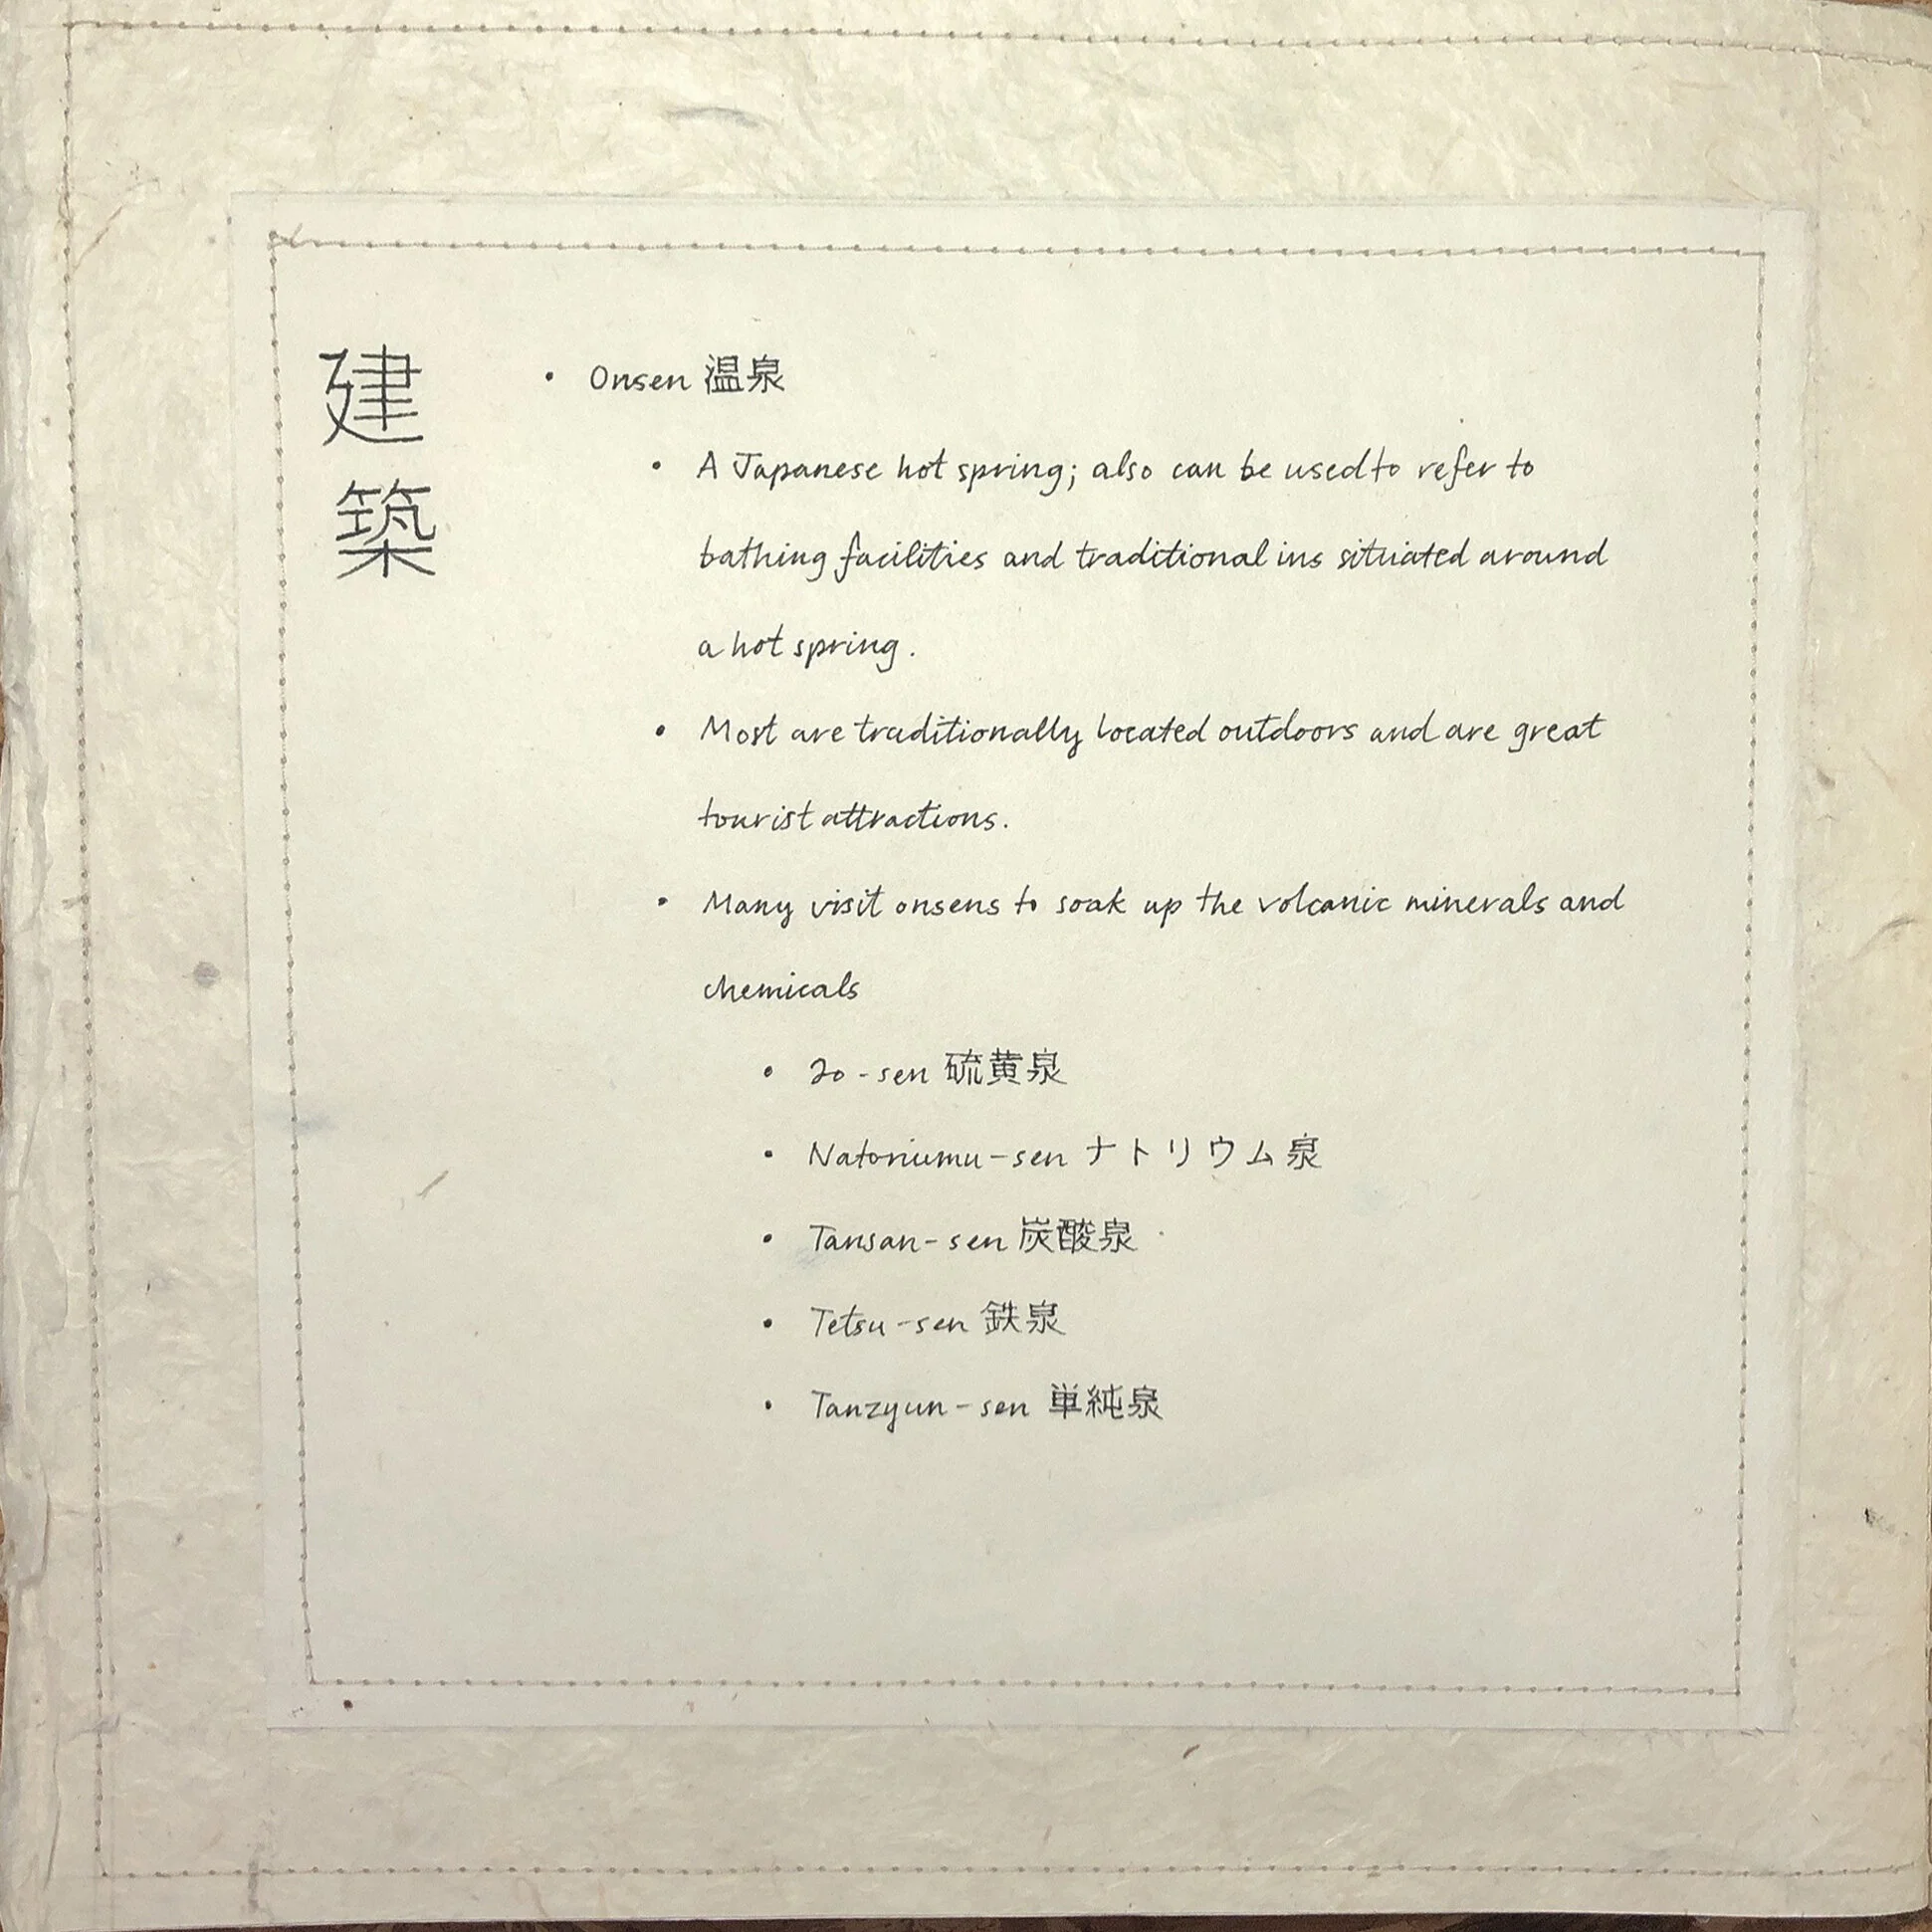 建築
• Onsen 温泉
• A Japanese hot spring; also can be used to refer to
bathing facilities and traditional ins situated around
a hot spring.
• Most are traditionally located outdoors and are great
tourist attractions.
• Many visit onsens to soak up the volcanic minerals and
chemicals
• Io-sen 硫黄泉
• Natoriumu-sen ナトリウム泉
• Tansan-sen 炭酸泉
• Tetsu-sen 鉄泉
• Tanzyun-sen 単純泉